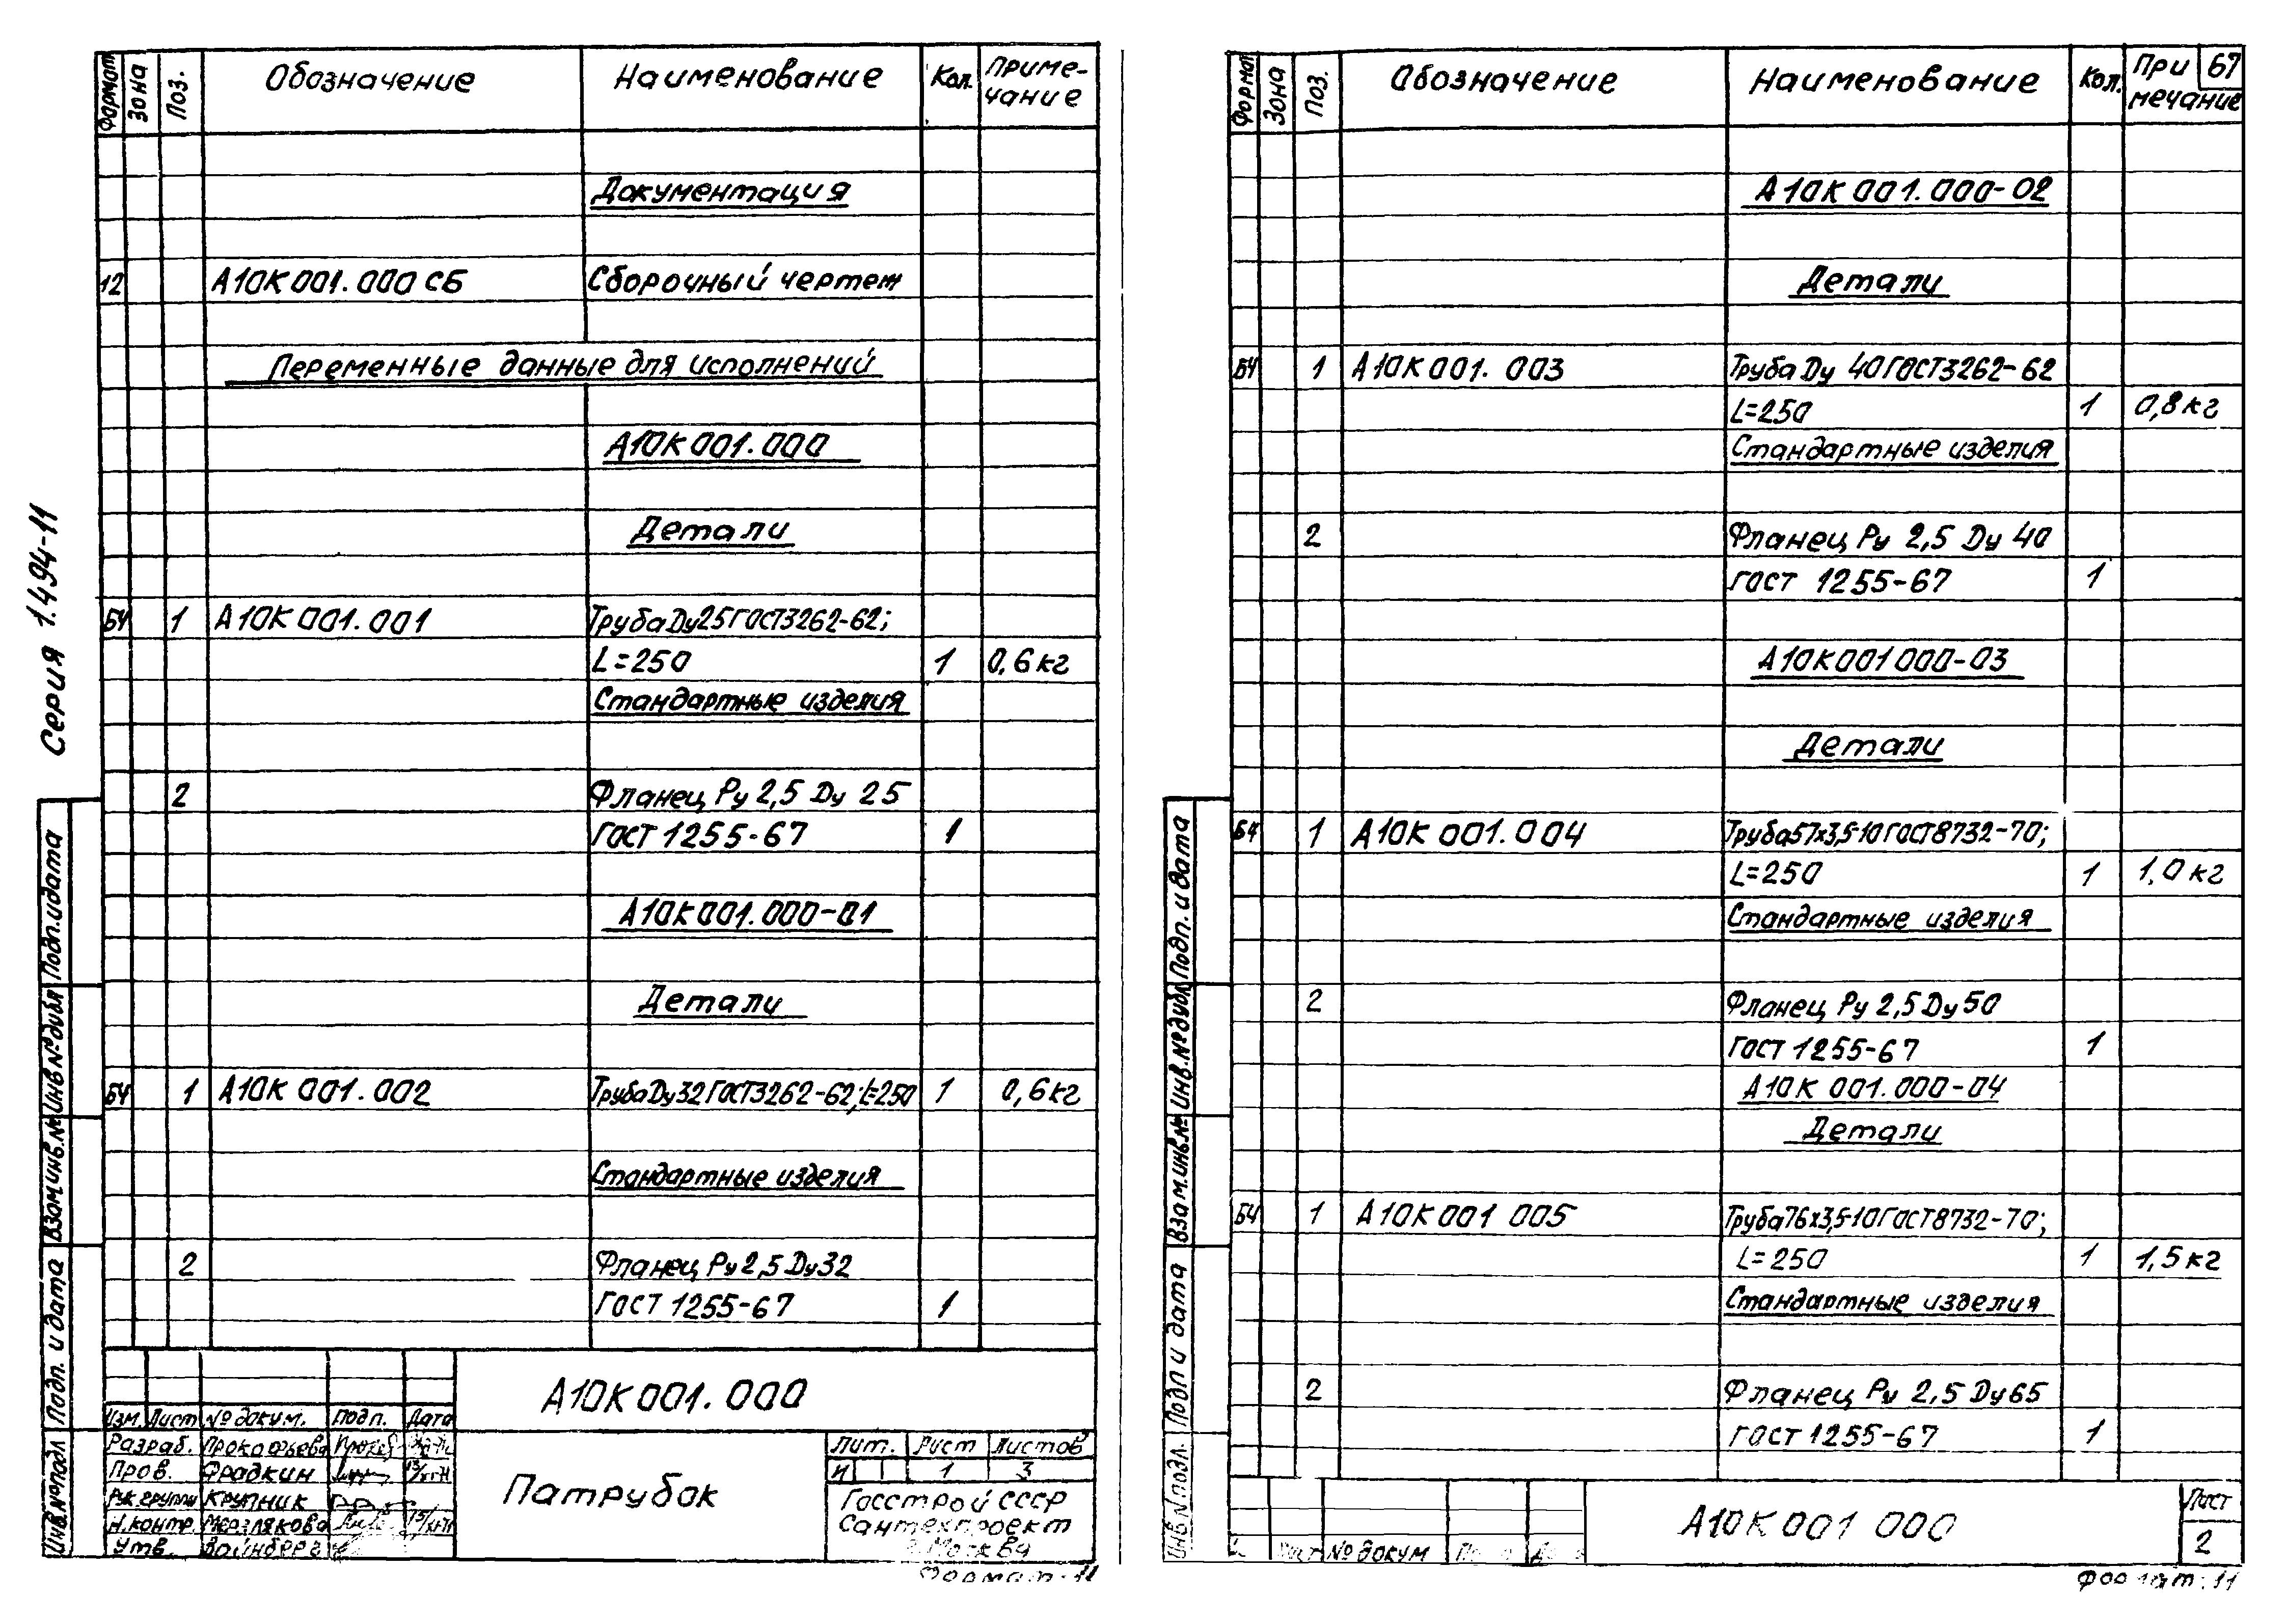 Серия 1.494-11
Формат Зона Поз. Обозначение Наименование Кол. Приме-
чание
Документация
12 А10К001.000 СБ Сборочный чертеж
Переменные данные для исполнений
А10К001.000
Детали
БЧ 1 А10К001.001 Труба Ду25 ГОСТ3262-62;
L=250 1 0,6кг
Стандартные изделия
2 Фланец Ру 2,5 Ду 25
ГОСТ 1255-67 1
А10К001.000-01
Детали
БЧ 1 А10К 001.002 Труба Ду32 ГОСТ3262-62; L=250 1 0,6кг
Стандартные изделия
2 Фланец Ру 2,5 Ду32
ГОСТ 1255-67 1
А10К001.000
Изм. Лист № докум. Подп. Дата
Разраб. Прокофьева
Пров. Фрадкин
Рук.группы Крупник
Н.контр. Мерзлякова
Утв. Вайнберг
Патрубок
Лит. Лист Листов
И 1 3
Госстрой СССР
Сантехпроект
г. Москва
Формат: 11
Инв.№подл Подп. и дата Взам.инв.№ Инв.№дубл Подп.и дата
Формат Зона Поз. Обозначение Наименование Кол. При
мечание
67
А10К 001.000-02
Детали
БЧ 1 А10К001. 003 Труба Ду 40 ГОСТ3262-62
L=250 1 0,8кг
Стандартные изделия
2 Фланец Ру 2,5 Ду 40
ГОСТ 1255-67 1
А10К001000-03
Детали
БЧ 1 А10К 001.004 Труба57х3,5-10 ГОСТ8732-70;
L=250 1 1,0кг
Стандартные изделия
2 Фланец Ру 2,5 Ду50
ГОСТ 1255-67 1
А10К 001.000-04
Детали
БЧ 1 А10К001 005 Труба76х3,5-10 ГОСТ8732-70;
L=250 1 1,5кг
Стандартные изделия
2 Фланец Ру 2,5 Ду65
ГОСТ 1255-67 1
А10К001 000
Лист
2
№ докум
Формат: 11
Инв.№подл. Подп и дата Взам.инв.№ Инв.№дубл Подп. и дата